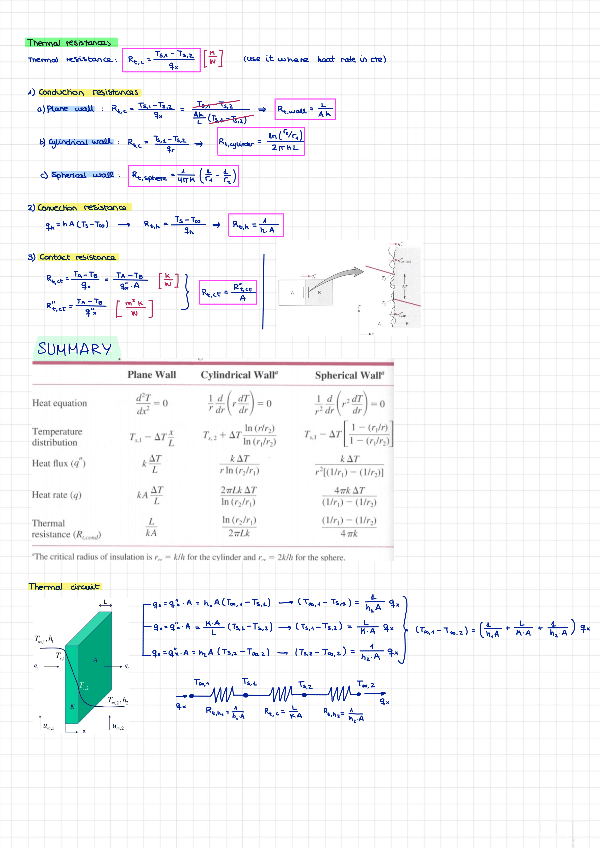 Thermal resistances
Thermal resistance: R_t,c = (T_s,1 − T_s,2) / q_x [K/W] (use it where heat rate is cte)
1) Conduction resistances
a) Plane wall : R_t,c = (T_s,1 − T_s,2) / q_x = (T_s,1 − T_s,2) / (Ak/L (T_s,1 − T_s,2)) ⇒ R_t,wall = L / Ak
b) Cylindrical wall : R_t,c = (T_s,1 − T_s,2) / q_r → R_t,cylinder = ln(r_2/r_1) / 2πkL
c) Spherical wall : R_t,sphere = 1/4πk (1/r_1 − 1/r_2)
2) Convection resistance
q_h = hA (T_s − T_∞) → R_t,h = (T_s − T_∞) / q_h → R_t,h = 1 / h.A
3) Contact resistance
R_t,ct = (T_A − T_B) / q_x = (T_A − T_B) / q"_x·A [K/W]
R"_t,ct = (T_A − T_B) / q"_x [m² K / W]
R_t,ct = R"_t,ct / A
SUMMARY
Plane Wall Cylindrical Wallᵃ Spherical Wallᵃ
Heat equation d²T/dx² = 0 1/r d/dr (r dT/dr) = 0 1/r² d/dr (r² dT/dr) = 0
Temperature distribution T_s,1 − ΔT x/L T_s,2 + ΔT ln (r/r_2) / ln (r_1/r_2) T_s,1 − ΔT [1 − (r_1/r) / 1 − (r_1/r_2)]
Heat flux (q") k ΔT/L k ΔT / r ln (r_2/r_1) k ΔT / r²[(1/r_1) − (1/r_2)]
Heat rate (q) kA ΔT/L 2πLk ΔT / ln (r_2/r_1) 4πk ΔT / (1/r_1) − (1/r_2)
Thermal resistance (R_t,cond) L/kA ln (r_2/r_1) / 2πLk (1/r_1) − (1/r_2) / 4πk
ᵃThe critical radius of insulation is r_cr = k/h for the cylinder and r_cr = 2k/h for the sphere.
Thermal circuit
q_x = q"_x · A = h_1 A (T_∞,1 − T_s,1) → (T_∞,1 − T_s,1) = 1/h_1A q_x
q_x = q"_x · A = K·A/L (T_s,1 − T_s,2) → (T_s,1 − T_s,2) = L/K·A q_x
q_x = q"_x · A = h_2 A (T_s,2 − T_∞,2) → (T_s,2 − T_∞,2) = 1/h_2·A q_x
(T_∞,1 − T_∞,2) = (1/h_1A + L/K·A + 1/h_2·A) q_x
T_∞,1 T_s,1 T_s,2 T_∞,2
q_x q_x
R_t,h1 = 1/h_1·A R_t,c = L/KA R_t,h2 = 1/h_2·A
L
T_∞,1, h_1
T_s,1
T_s,2
T_∞,2, h_2